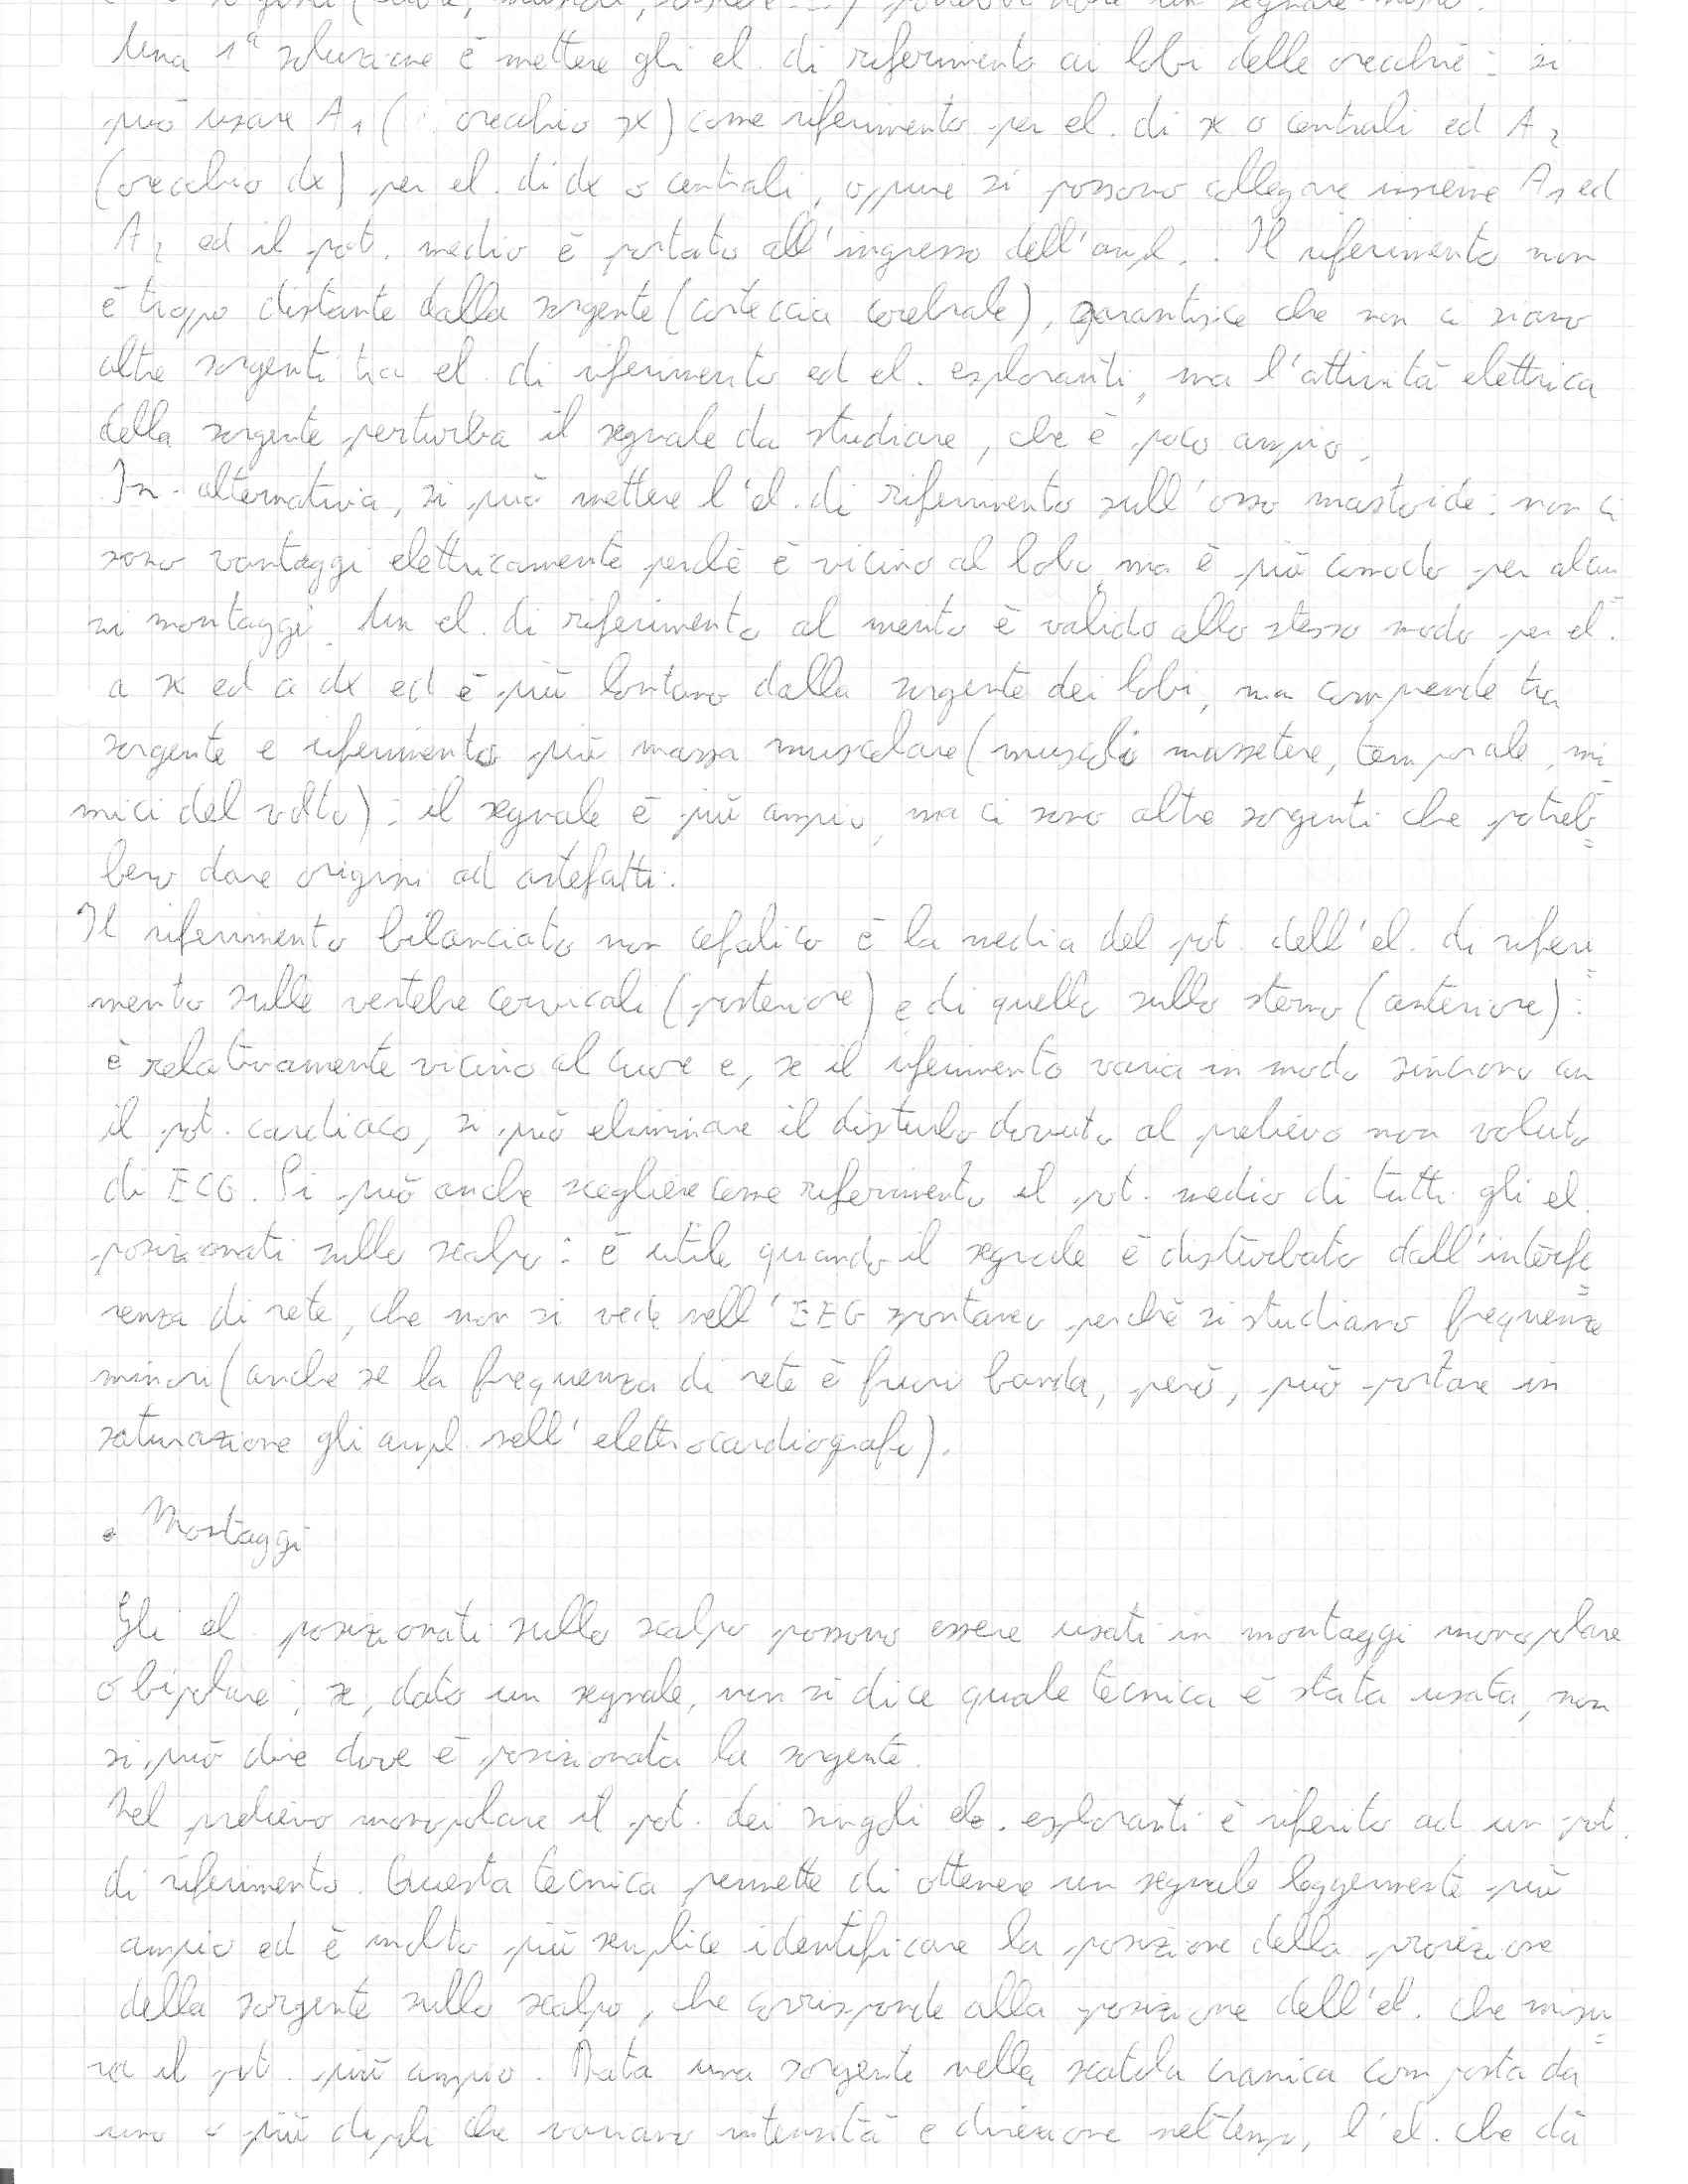 potrebbe dare un segnale misto.
Una 1ª soluzione è mettere gli el. di riferimento ai lobi delle orecchie: si
può usare A1 (orecchio sx) come riferimento per el. di sx o centrali ed A2
(orecchio dx) per el. di dx o centrali, oppure si possono collegare insieme A1 ed
A2 ed il pot. medio è portato all'ingresso dell'ampl.. Il riferimento non
è troppo distante dalla sorgente (corteccia cerebrale), garantisce che non ci siano
altre sorgenti tra el. di riferimento ed el. esploranti, ma l'attività elettrica
della sorgente perturba il segnale da studiare, che è poco ampio.
In alternativa, si può mettere l'el. di riferimento sull'osso mastoide: non ci
sono vantaggi elettricamente perchè è vicino al lobo, ma è più comodo per alcu=
ni montaggi. Un el. di riferimento al mento è valido allo stesso modo per el.
a sx ed a dx ed è più lontano dalla sorgente dei lobi, ma comprende tra
sorgente e riferimento più massa muscolare (muscoli massetere, temporale, mi=
mici del volto): il segnale è più ampio, ma ci sono altre sorgenti che potreb=
bero dare origini ad artefatti.
Il riferimento bilanciato non cefalico è la media del pot. dell'el. di riferi=
mento sulle vertebre cervicali (posteriore) e di quello sullo sterno (anteriore):
è relativamente vicino al cuore e, se il riferimento varia in modo sincrono con
il pot. cardiaco, si può eliminare il disturbo dovuto al prelievo non voluto
di ECG. Si può anche scegliere come riferimento il pot. medio di tutti gli el.
posizionati sullo scalpo: è utile quando il segnale è disturbato dall'interfe=
renza di rete, che non si vede nell'EEG spontaneo perchè si studiano frequenze
minori (anche se la frequenza di rete è fuori banda, però, può portare in
saturazione gli ampl. nell'elettrocardiografo).
• Montaggi
Gli el. posizionati sullo scalpo possono essere usati in montaggi monopolare
o bipolare; se, dato un segnale, non si dice quale tecnica è stata usata, non
si può dire dove è posizionata la sorgente.
Nel prelievo monopolare il pot. dei singoli el. esploranti è riferito ad un pot.
di riferimento. Questa tecnica permette di ottenere un segnale leggermente più
ampio ed è molto più semplice identificare la posizione della proiezione
della sorgente sullo scalpo, che corrisponde alla posizione dell'el. che misu=
ra il pot. più ampio. Data una sorgente nella scatola cranica composta da
uno o più dipoli che variano intensità e direzione nel tempo, l'el. che dà